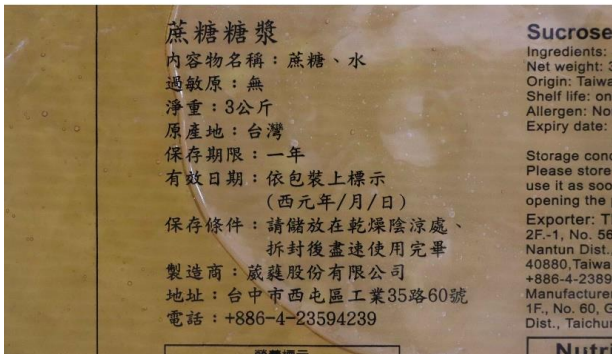 蔗糖糖漿
內容物名稱：蔗糖、水
過敏原：無
淨重：3公斤
原產地：台灣
保存期限：一年
有效日期：依包裝上標示
(西元年/月/日)
保存條件：請儲放在乾燥陰涼處、
拆封後盡速使用完畢
製造商：葳蕤股份有限公司
地址：台中市西屯區工業35路60號
電話：+886-4-23594239
Sucrose
Ingredients:
Net weight: 3
Origin: Taiwa
Shelf life: on
Allergen: No
Expiry date:
Storage con
Please store
use it as soo
opening the
Exporter: T
2F.-1, No. 56
Nantun Dist.,
40880,Taiwa
+886-4-2389
Manufacture
1F., No. 60, G
Dist., Taichu
Nutri